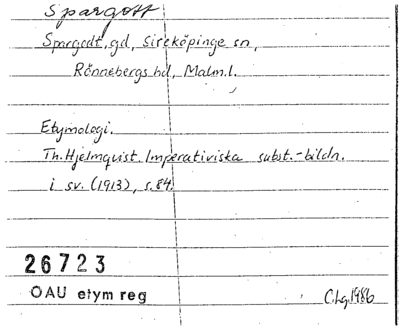 Spargott
Spargodt, gd, Sireköpinge sn,
Rönnebergs hd, Malm.l.
Etymologi.
Th. Hjelmquist Imperativiska subst.-bildn.
i sv. (1913), s. 84.
26723
OAU etym reg
C.Lg. 1986